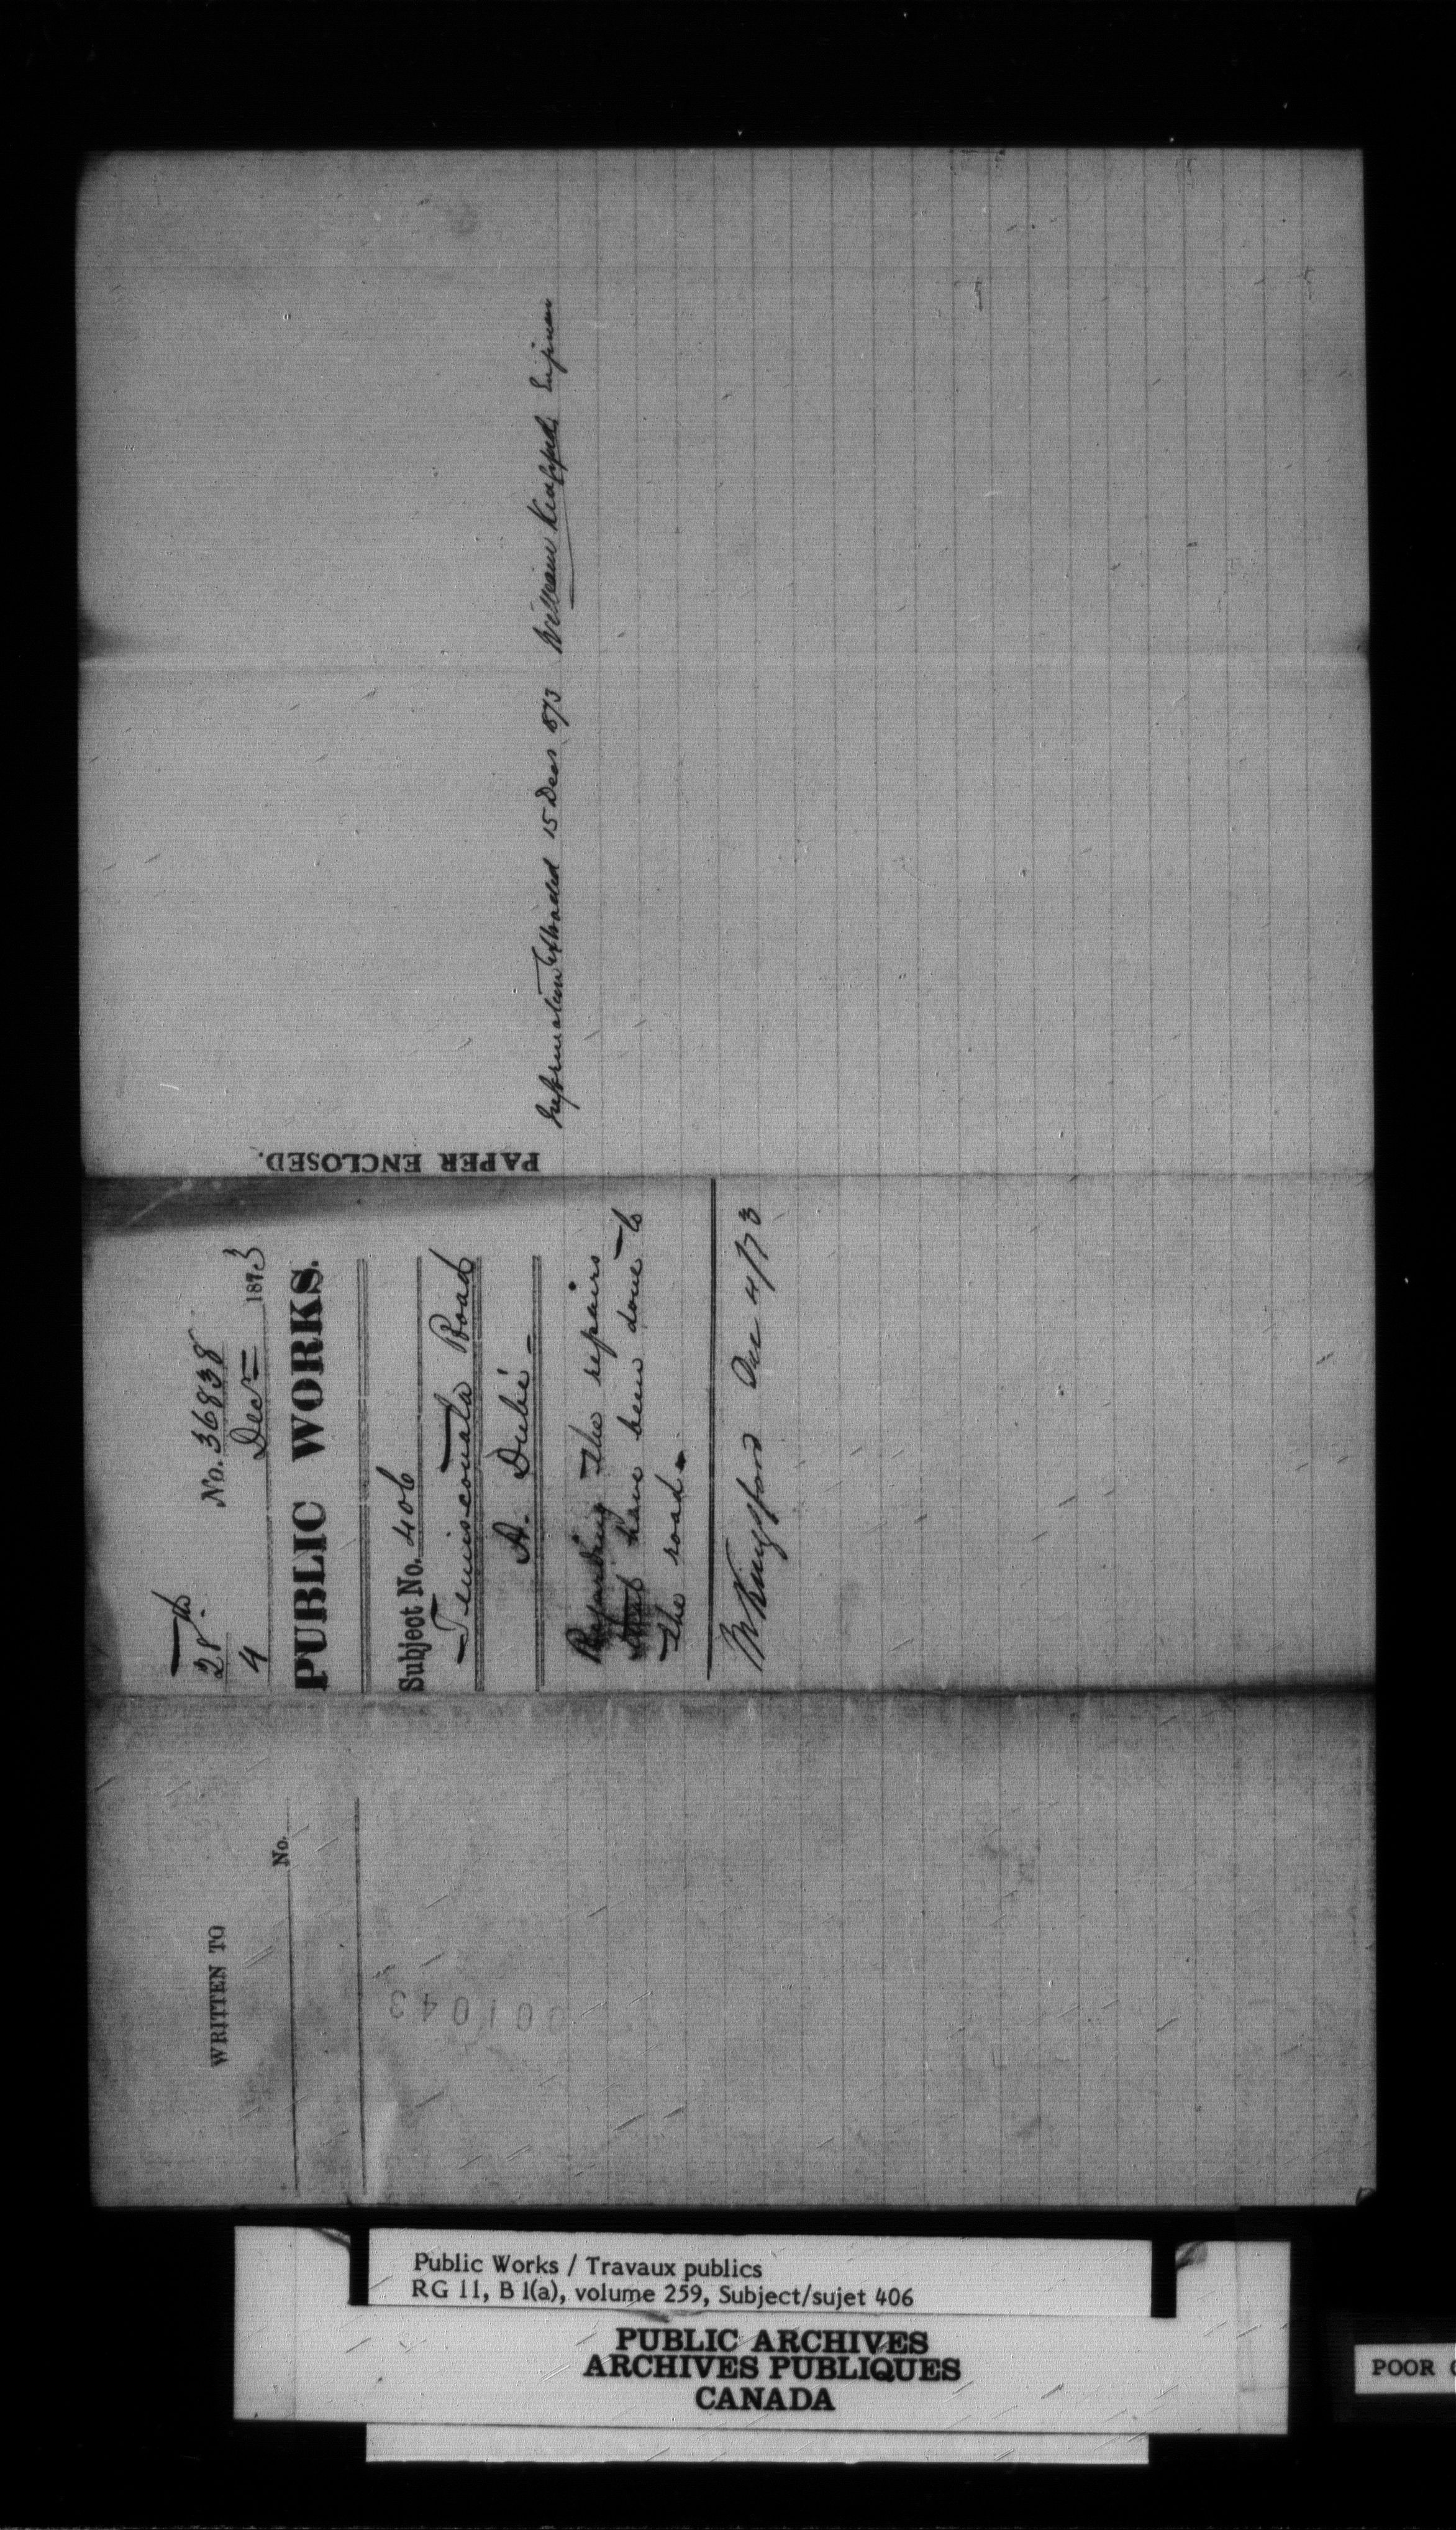 28th
No. 36838
4 Decr 1873
PUBLIC WORKS.
Subject No. 406
Temiscouata Road
A. Dubé
Regarding the repairs
that have been done to
the road.
W Kingsford Dec 4/73
PAPER ENCLOSED.
Information Extracted 15 Decr 1873 William
WRITTEN TO
No.
001043
Public Works / Travaux publics
RG 11, B 1(a), volume 259, Subject/sujet 406
PUBLIC ARCHIVES
ARCHIVES PUBLIQUES
CANADA
POOR